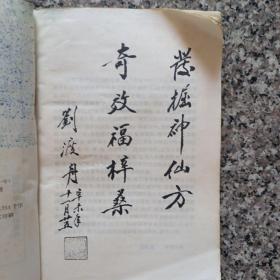 发掘神仙方
奇效福梓桑
劉渡舟
辛未年
十一月廿五